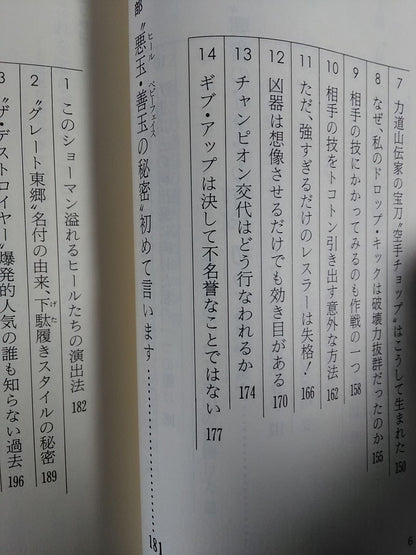 7 力道山伝家の宝刀〝空手チョップ〟はこうして生まれた 150
8 なぜ、私のドロップ・キックは破壊力抜群だったのか 155
9 相手の技にかかってみるのも作戦の一つ 158
10 相手の技をトコトン引き出す意外な方法 162
11 ただ、強すぎるだけのレスラーは失格! 166
12 凶器は想像させるだけでも効き目がある 170
13 チャンピオン交代はどう行なわれるか 174
14 ギブ・アップは決して不名誉なことではない 177
部 〝悪玉・善玉の秘密〟初めて言います…………… 181
ヒール ベビーフェイス
1 このショーマン溢れるヒールたちの演出法 182
2 〝グレート東郷〟名付の由来、下駄履きスタイルの秘密 189
げた
3 〝ザ・デストロイヤー〟爆発的人気の誰も知らない過去 196
6